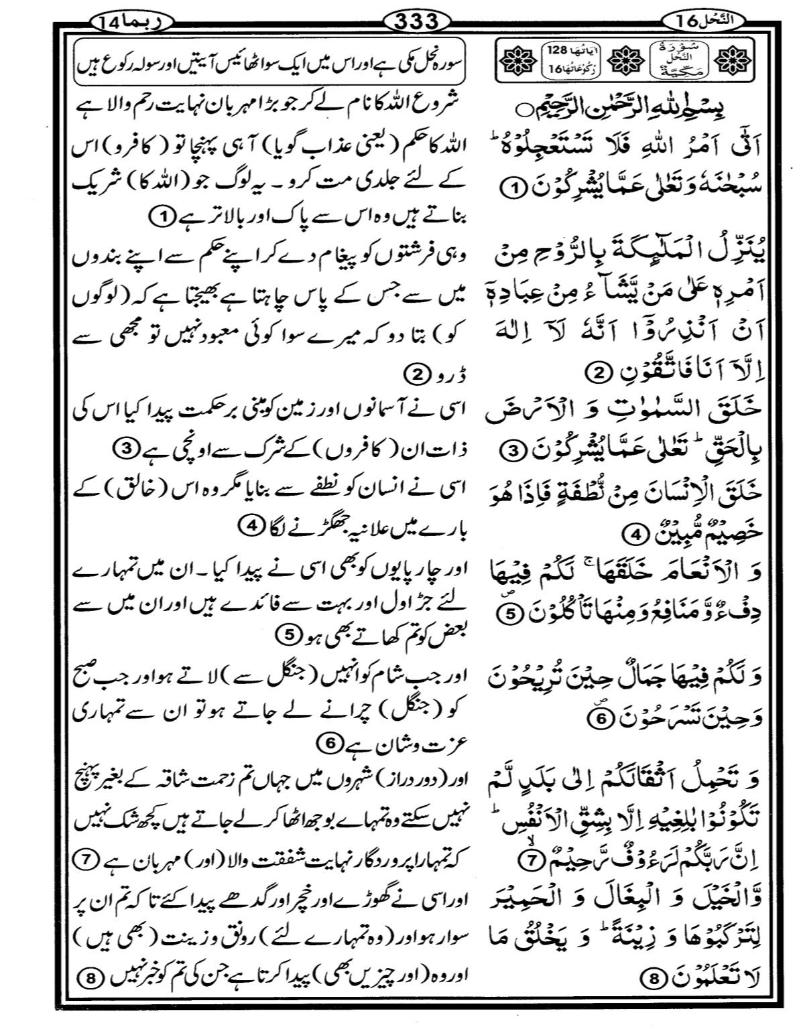 النَّحْل 16
333
رُبَمَا 14
سُوْرَةُ النَّحْل مَكِّيَّةٌ
اٰيَاتُهَا 128
رُكُوْعَاتُهَا 16
سورہ نحل مکی ہے اور اس میں ایک سو اٹھائیس آیتیں اور سولہ رکوع ہیں
بِسْمِ اللّٰهِ الرَّحْمٰنِ الرَّحِيْمِ
اَتٰۤى اَمْرُ اللّٰهِ فَلَا تَسْتَعْجِلُوْهُ ؕ
سُبْحٰنَهٗ وَ تَعٰلٰى عَمَّا يُشْرِكُوْنَ ①
يُنَزِّلُ الْمَلٰٓئِكَةَ بِالرُّوْحِ مِنْ
اَمْرِهٖ عَلٰى مَنْ يَّشَآءُ مِنْ عِبَادِهٖۤ
اَنْ اَنْذِرُوْۤا اَنَّهٗ لَاۤ اِلٰهَ
اِلَّاۤ اَنَا فَاتَّقُوْنِ ②
خَلَقَ السَّمٰوٰتِ وَ الْاَرْضَ
بِالْحَقِّ ؕ تَعٰلٰى عَمَّا يُشْرِكُوْنَ ③
خَلَقَ الْاِنْسَانَ مِنْ نُّطْفَةٍ فَاِذَا هُوَ
خَصِيْمٌ مُّبِيْنٌ ④
وَ الْاَنْعَامَ خَلَقَهَا ۚ لَكُمْ فِيْهَا
دِفْءٌ وَّ مَنَافِعُ وَ مِنْهَا تَاْكُلُوْنَ ⑤
وَ لَكُمْ فِيْهَا جَمَالٌ حِيْنَ تُرِيْحُوْنَ
وَ حِيْنَ تَسْرَحُوْنَ ⑥
وَ تَحْمِلُ اَثْقَالَكُمْ اِلٰى بَلَدٍ لَّمْ
تَكُوْنُوْا بٰلِغِيْهِ اِلَّا بِشِقِّ الْاَنْفُسِ ؕ
اِنَّ رَبَّكُمْ لَرَءُوْفٌ رَّحِيْمٌ ⑦
وَّ الْخَيْلَ وَ الْبِغَالَ وَ الْحَمِيْرَ
لِتَرْكَبُوْهَا وَ زِيْنَةً ؕ وَ يَخْلُقُ مَا
لَا تَعْلَمُوْنَ ⑧
شروع اللہ کا نام لے کر جو بڑا مہربان نہایت رحم والا ہے
اللہ کا حکم (یعنی عذاب گویا) آ ہی پہنچا تو (کافرو) اس
کے لئے جلدی مت کرو۔ یہ لوگ جو (اللہ کا) شریک
بناتے ہیں وہ اس سے پاک اور بالاتر ہے ①
وہی فرشتوں کو پیغام دے کر اپنے حکم سے اپنے بندوں
میں سے جس کے پاس چاہتا ہے بھیجتا ہے کہ (لوگوں
کو) بتا دو کہ میرے سوا کوئی معبود نہیں تو مجھی سے
ڈرو ②
اسی نے آسمانوں اور زمین کو مبنی برحکمت پیدا کیا اس کی
ذات ان (کافروں) کے شرک سے اونچی ہے ③
اسی نے انسان کو نطفے سے بنایا مگر وہ اس (خالق) کے
بارے میں علانیہ جھگڑنے لگا ④
اور چارپایوں کو بھی اسی نے پیدا کیا۔ ان میں تمہارے
لئے جڑاول اور بہت سے فائدے ہیں اور ان میں سے
بعض کو تم کھاتے بھی ہو ⑤
اور جب شام کو انہیں (جنگل سے) لاتے ہو اور جب صبح
کو (جنگل) چرانے لے جاتے ہو تو ان سے تمہاری
عزت و شان ہے ⑥
اور (دور دراز) شہروں میں جہاں تم زحمت شاقہ کے بغیر پہنچ
نہیں سکتے وہ تمہارے بوجھ اٹھا کر لے جاتے ہیں کچھ شک نہیں
کہ تمہارا پروردگار نہایت شفقت والا (اور) مہربان ہے ⑦
اور اسی نے گھوڑے اور خچر اور گدھے پیدا کئے تاکہ تم ان پر
سوار ہو اور (وہ تمہارے لئے) رونق و زینت (بھی ہیں)
اور وہ (اور چیزیں بھی) پیدا کرتا ہے جن کی تم کو خبر نہیں ⑧